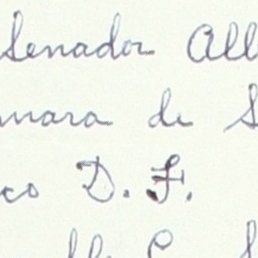 Senador Alb
mara de S
co D. F.